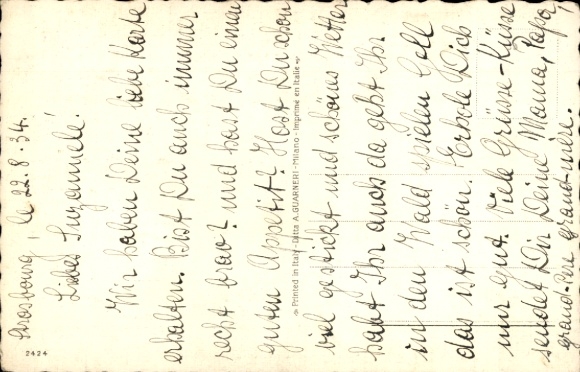 Strasbourg, le 22.8.34.
Liebes Suzannele!
Wir haben Deine liebe Karte
erhalten. Bist Du auch immer
recht brav? und hast Du einen
guten Appetit? Hast Du schon
viel gestickt und schönes Wetter
habt Ihr auch da geht Ihr
in den Wald spielen gell
das ist schön. Erhole Dich
nur gut. Viele Grüsse-Küsse
sendet Dir Deine Mama, Papa,
grand-Père grand-mère.
Printed in Italy - Ditta A. GUARNERI - Milano - Imprimé en Italie
2424